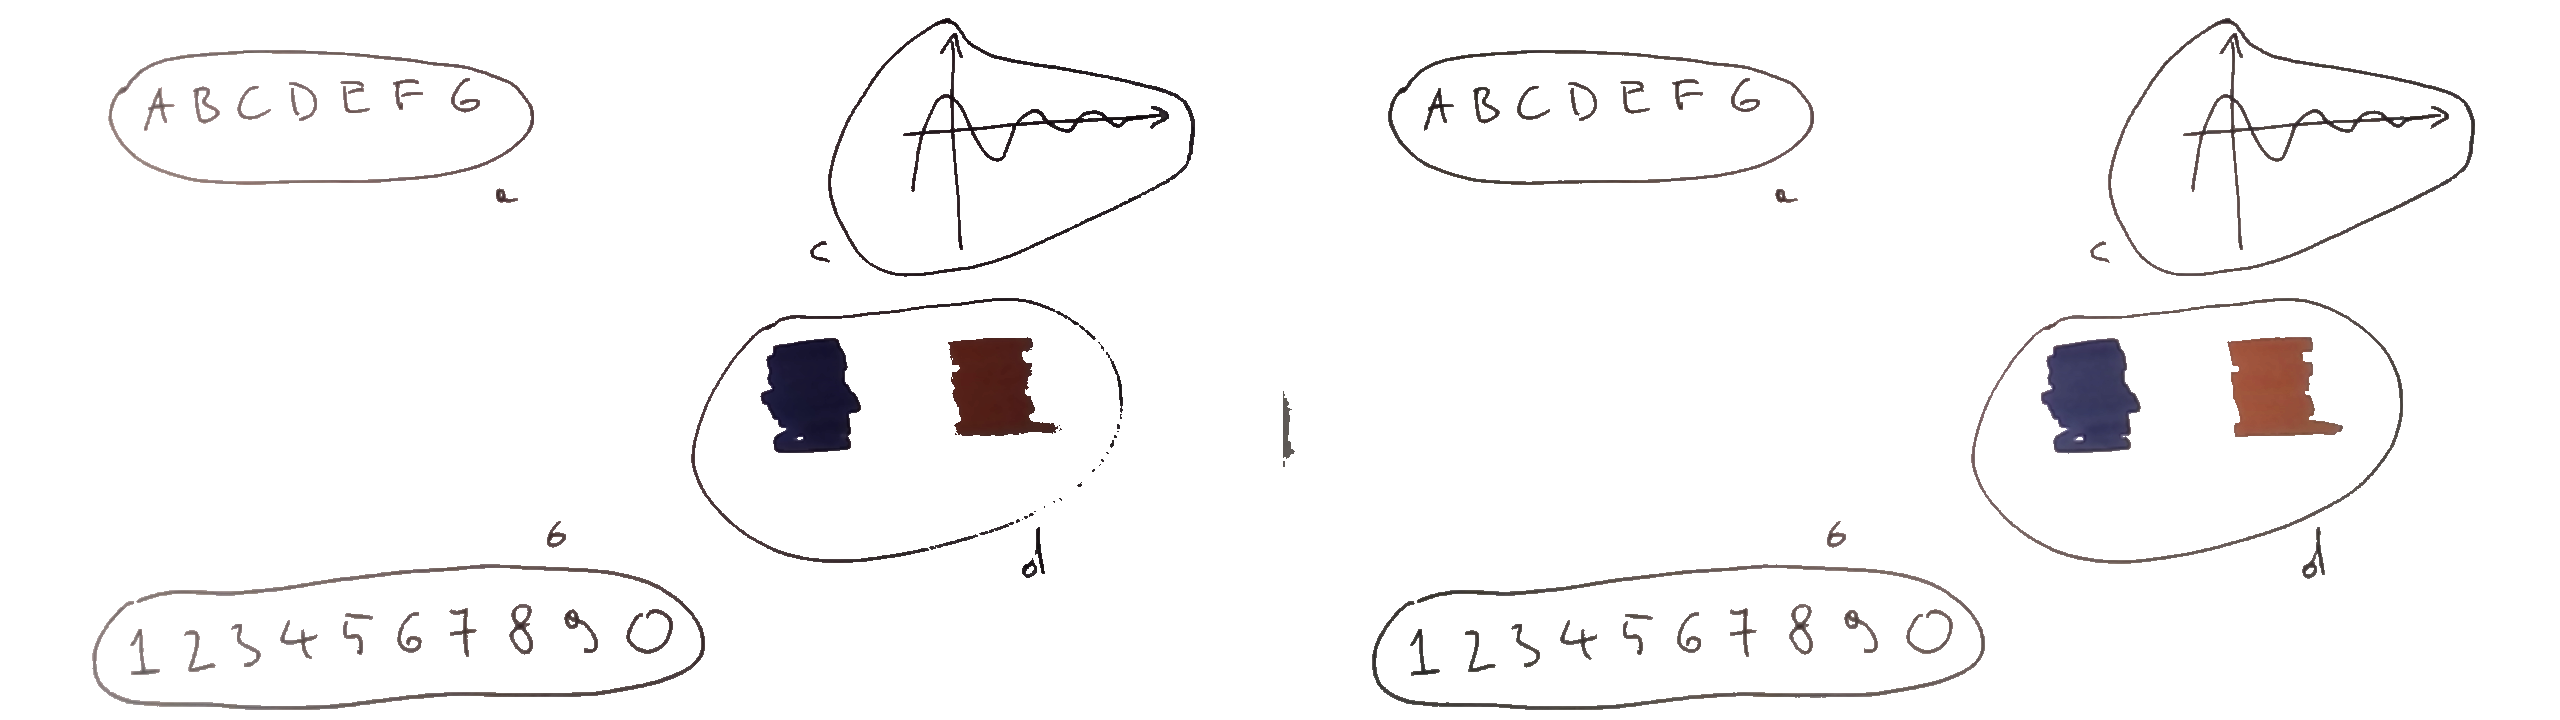 A B C D E F G
a
c
d
б
1 2 3 4 5 6 7 8 9 0
A B C D E F G
a
c
d
б
1 2 3 4 5 6 7 8 9 0